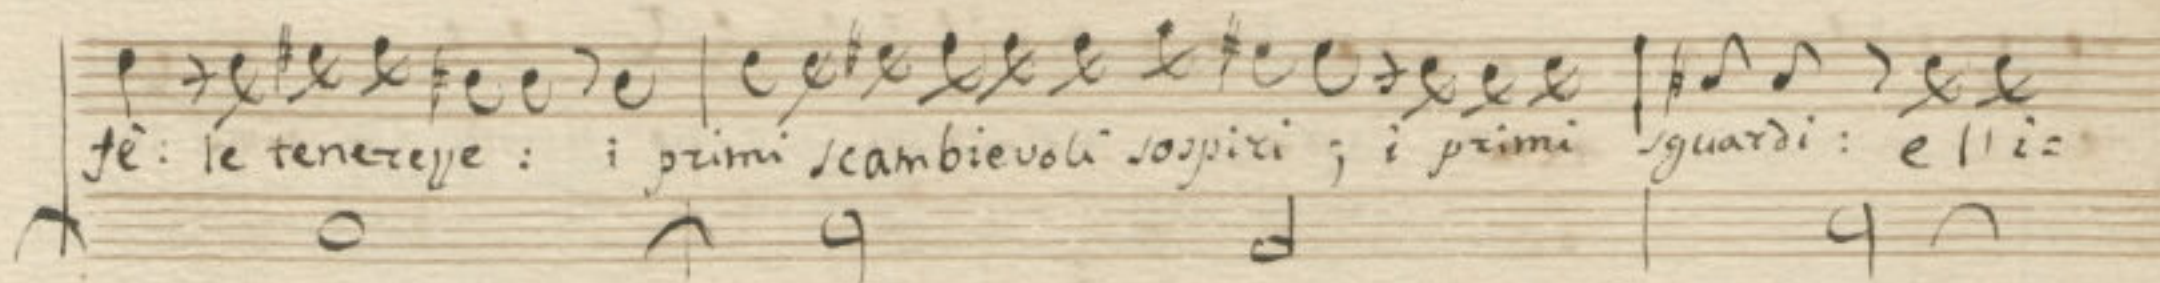 fè: le tenerezze: i primi scambievoli sospiri; i primi sguardi: e l'i=